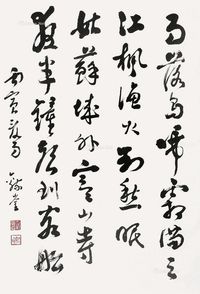 月落烏啼霜滿天
江楓漁火對愁眠
姑蘇城外寒山寺
夜半鐘聲到客船
丙寅夏